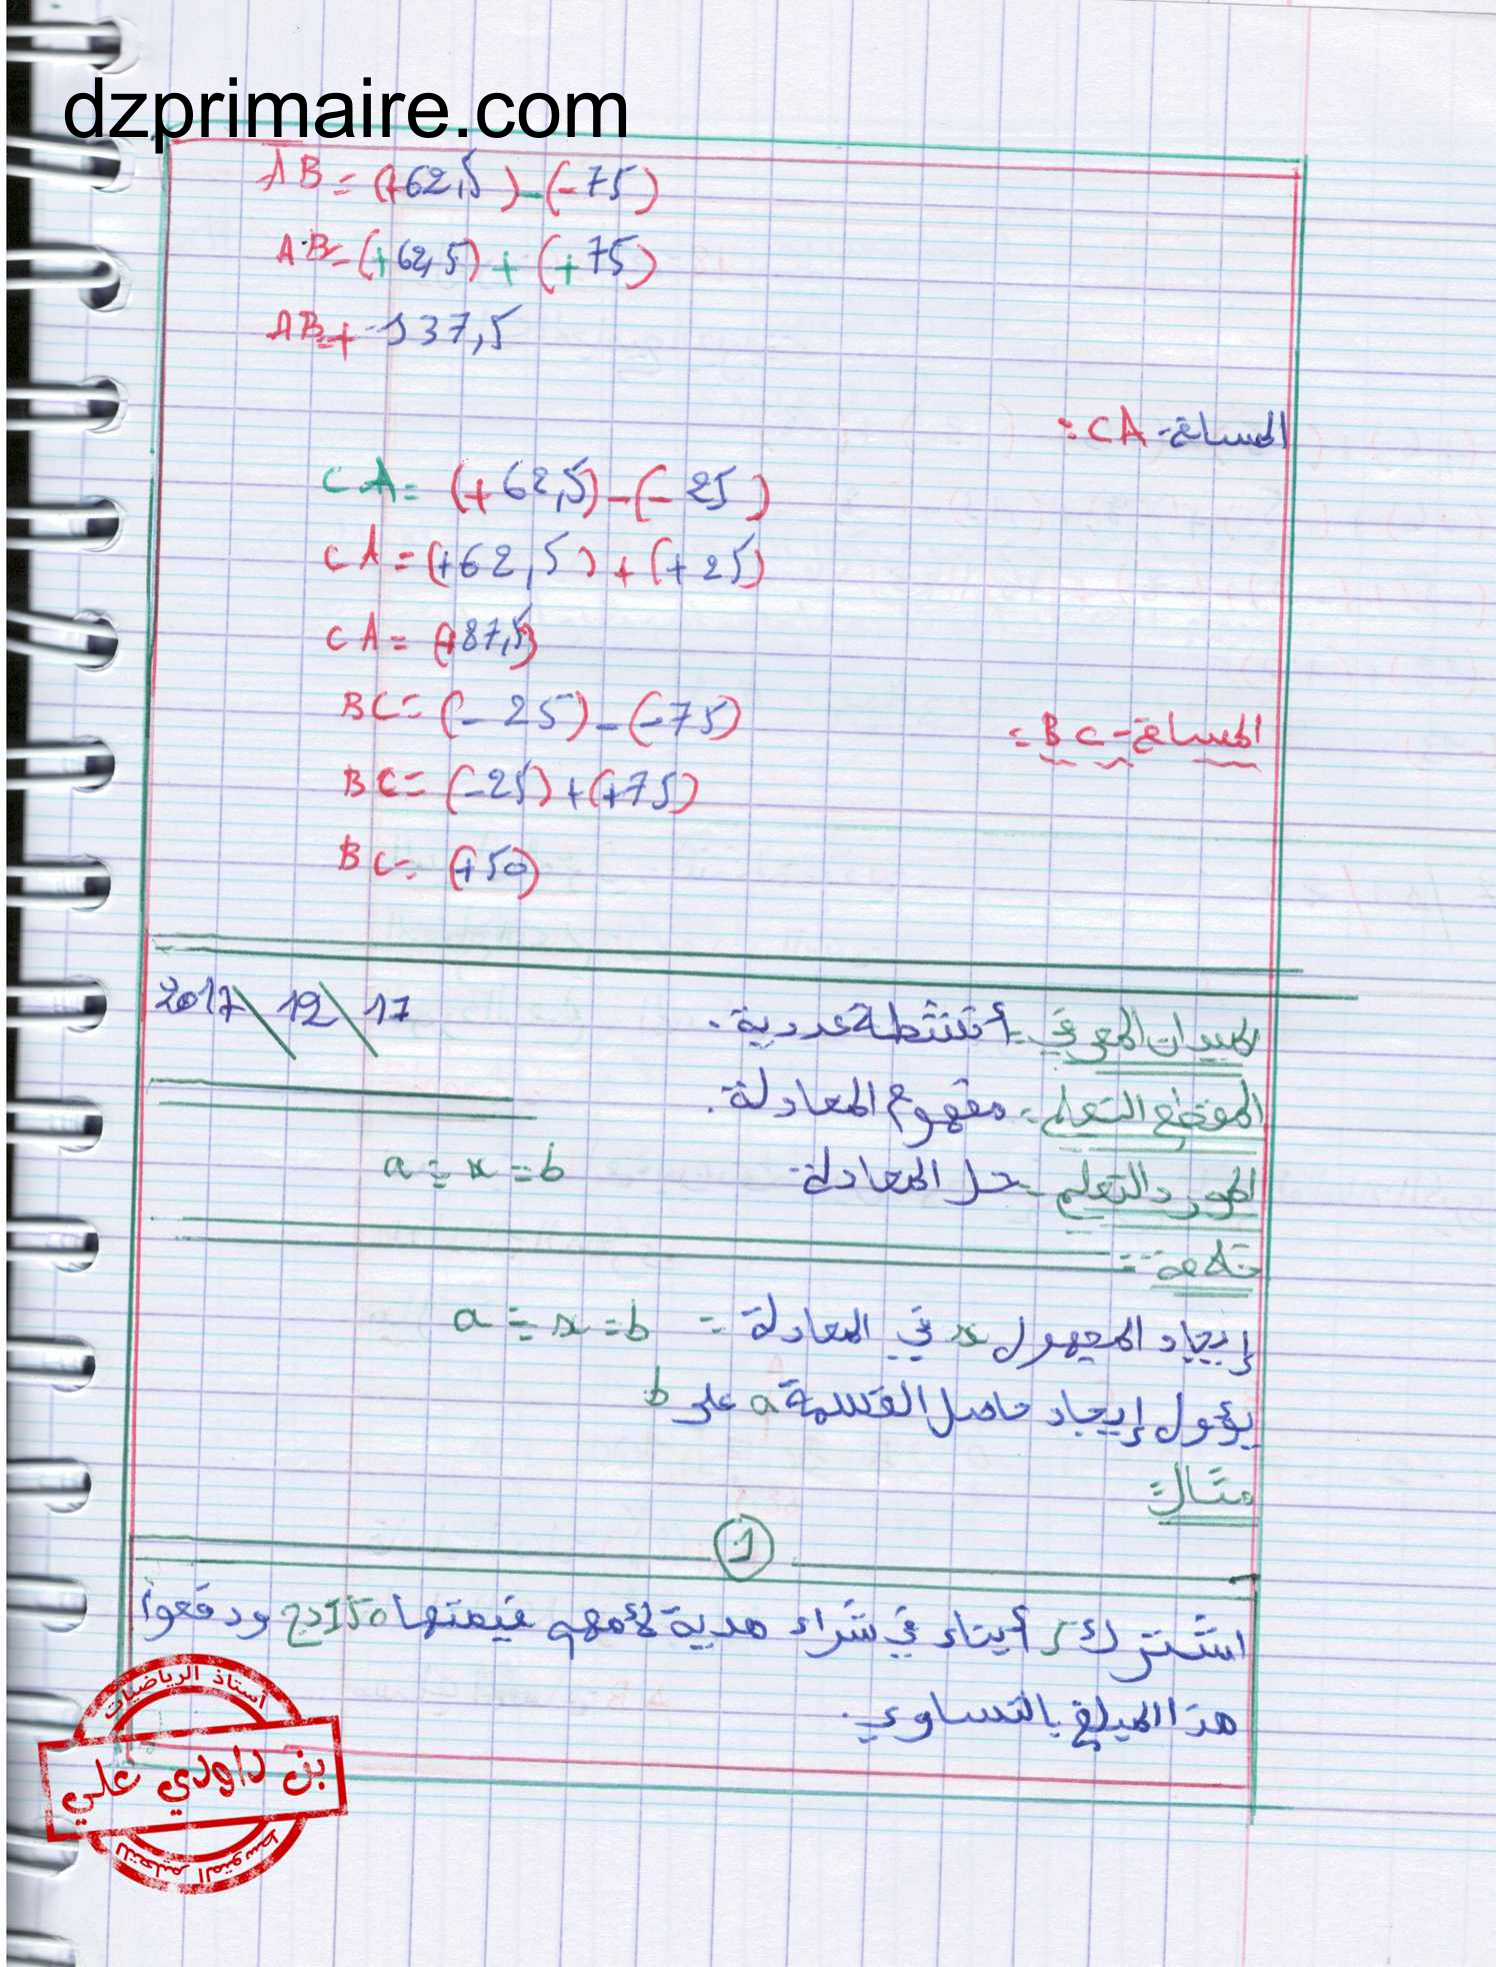 dzprimaire.com
AB = (+62,5) - (-75)
AB = (+62,5) + (+75)
AB = +137,5
المسافة CA:
CA = (+62,5) - (-25)
CA = (+62,5) + (+25)
CA = (+87,5)
المسافة BC:
BC = (-25) - (-75)
BC = (-25) + (+75)
BC = (+50)
2017\12\17
الميدان المعرفي: أنشطة عددية.
المقطع التعلمي: مفهوم المعادلة.
المورد التعلمي: حل المعادلة a ÷ x = b
خلاصة:
إيجاد المجهول x في المعادلة: a ÷ x = b
يؤول إيجاد حاصل القسمة a على b
مثال:
1
اشترك 5 أبناء في شراء هدية لأمهم قيمتها 150 دج ودفعوا
هذا المبلغ بالتساوي.
أستاذ الرياضيات
بن داودي علي
للتعليم المتوسط